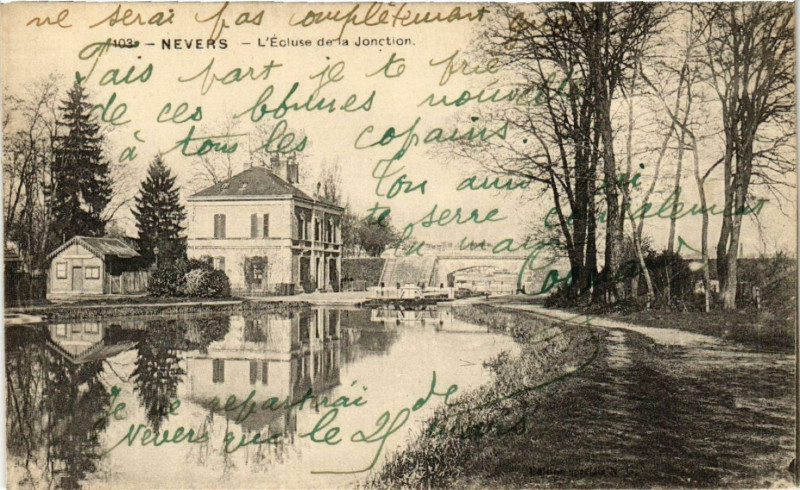 ne serai pas complètement
103. - NEVERS - L'Écluse de la Jonction.
Fais part je te prie
de ces bonnes nouvelles
à tous les copains.
Ton ami qui
te serre cordialement
la main
Je ne repartirai de
Nevers que le 25 mars